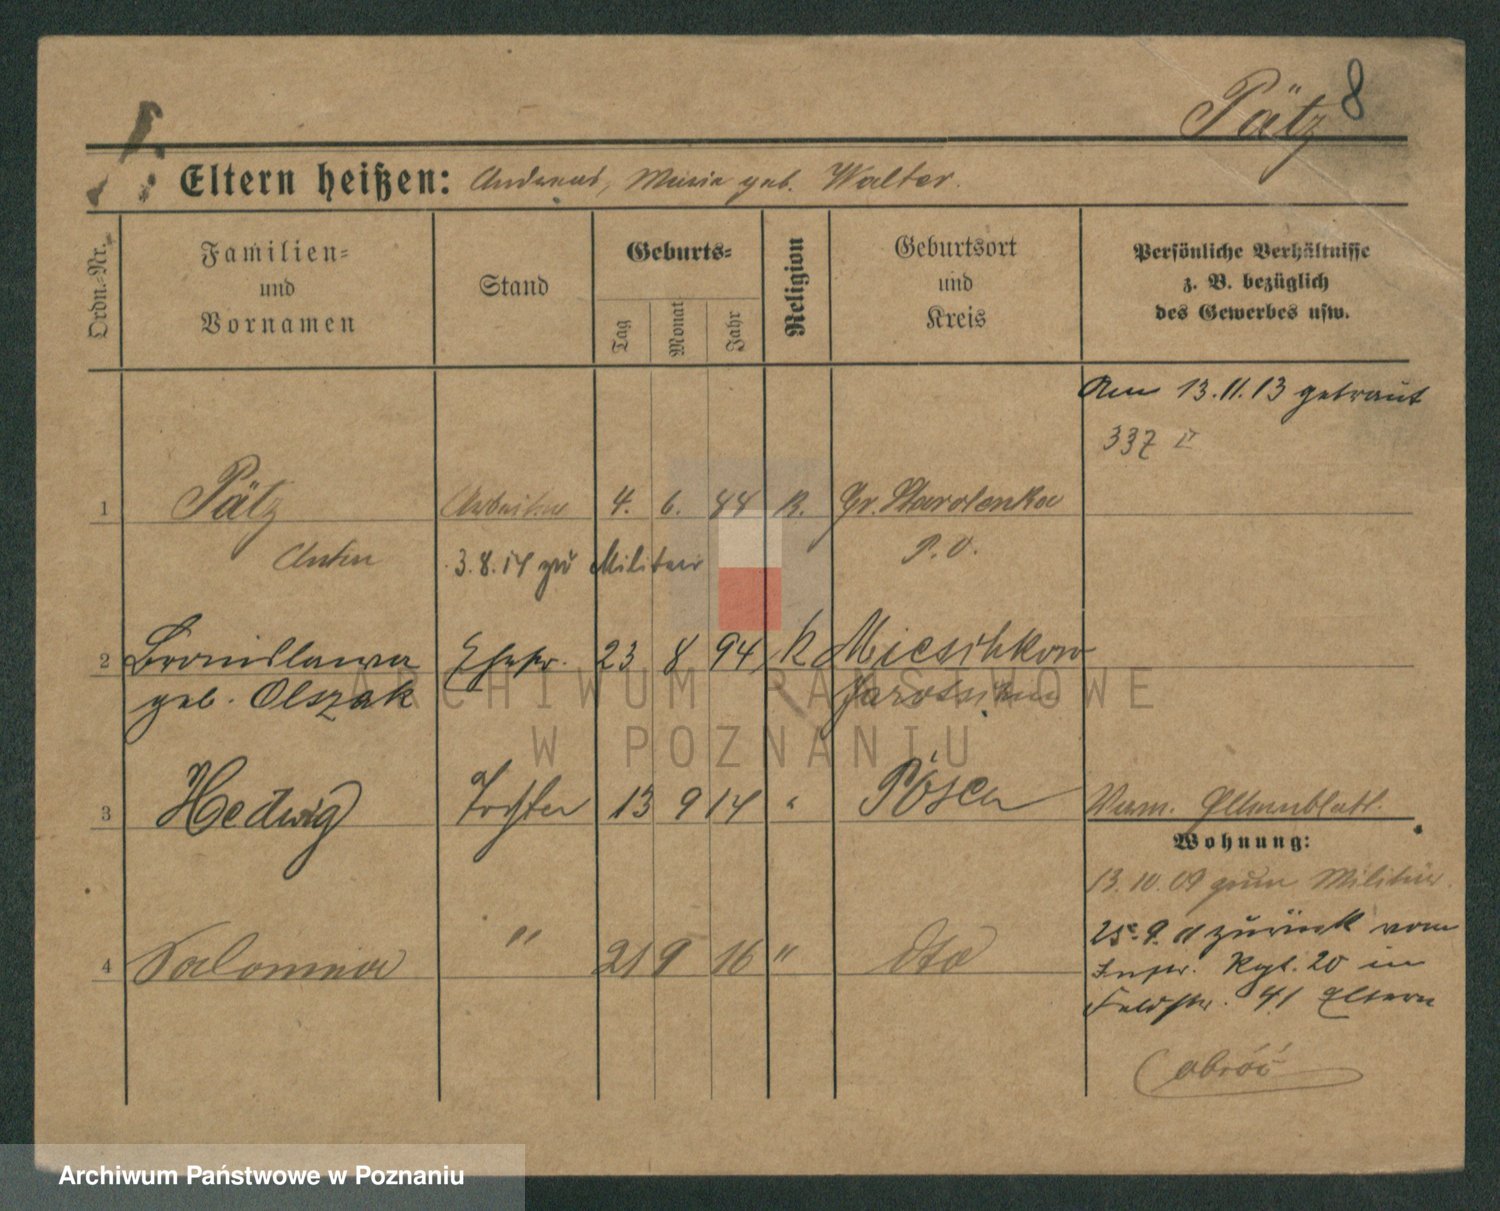 Pätz 8
Eltern heißen: Andreas, Maria geb. Walter.
Ordn.-Nr.
Familien-
und
Vornamen
Stand
Geburts-
Tag
Monat
Jahr
Religion
Geburtsort
und
Kreis
Persönliche Verhältnisse
z. B. bezüglich
des Gewerbes usw.
Am 13.11.13 getraut
337 II
1 Pätz Arbeiter 4. 6. 88 R. Gr. Starolenka
Anton 3.8.14 zu Militär P. O.
2 Bronislawa Ehefr. 23 8 94 K Mieschkow
geb. Olszak Jarotschin
3 Hedwig Tochter 13 9 14 " Posen
Verm. Elternblatt.
Wohnung:
13.10.09 zum Militär.
4 Salomea " 21 9 16 " dto
25.9.11 zurück vom
Inftr. Rgt. 20 in
Feldstr. 41 Eltern
obróć
ARCHIWUM PAŃSTWOWE
W POZNANIU
Archiwum Państwowe w Poznaniu